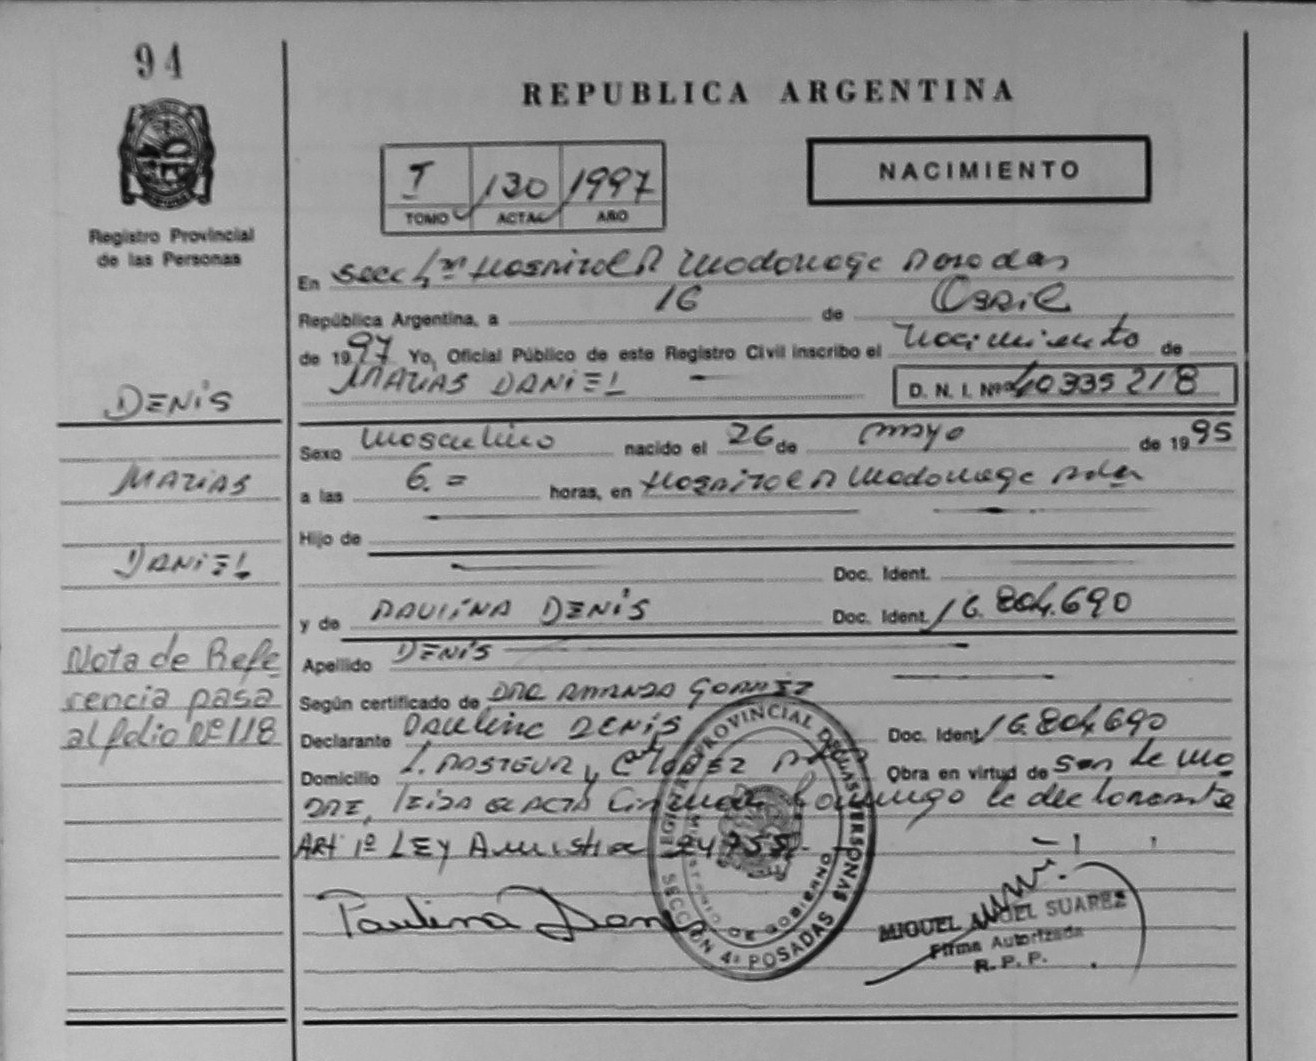 94
REPUBLICA ARGENTINA
I 130 1997
TOMO ACTA AÑO
NACIMIENTO
Registro Provincial
de las Personas
En Secc 4ª Hospital R Madariaga Posadas
República Argentina, a 16 de Abril
de 1997 Yo, Oficial Público de este Registro Civil inscribo el Nacimiento de
MATIAS DANIEL
D. N. I. Nº 40335218
DENIS
Sexo Masculino nacido el 26 de mayo de 1995
MATIAS
a las 6.= horas, en Hospital R Madariaga
Hijo de
DANIEL
Doc. Ident.
y de PAULINA DENIS Doc. Ident. 16.804.690
Nota de Refe-
rencia pasa
al folio Nº 118
Apellido DENIS
Según certificado de DRA AMANDA
Declarante PAULINA DENIS Doc. Ident. 16.804.690
Domicilio L. PASTEUR y Obra en virtud de ser la ma
DRE, leida el ACTA la declarante
ART 1º LEY Amnistia 24755.
Paulina Denis
REGISTRO PROVINCIAL DE LAS PERSONAS
MINISTERIO DE GOBIERNO
SECCION 4ª POSADAS
MIGUEL ANGEL SUAREZ
Firma Autorizada
R. P. P.